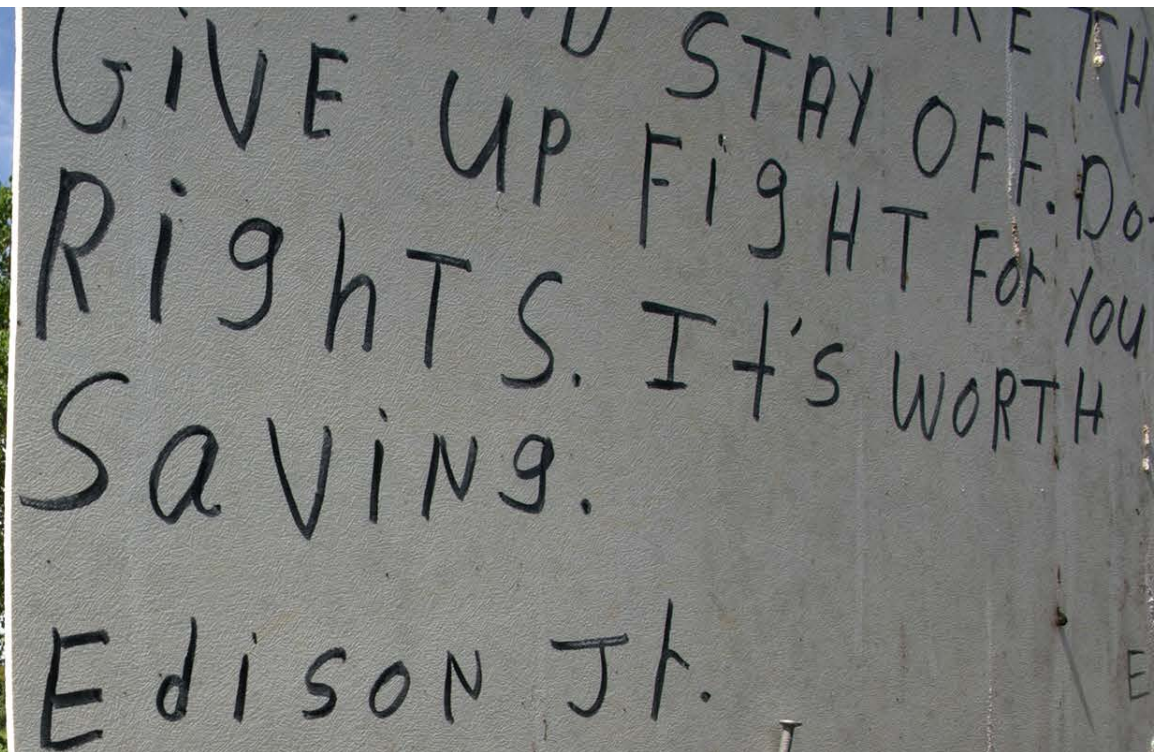 STAY OFF. Do
GIVE UP FIGHT FOR YOU
RIGHTS. It's WORTH
SAVING.
Edison Jr.
E